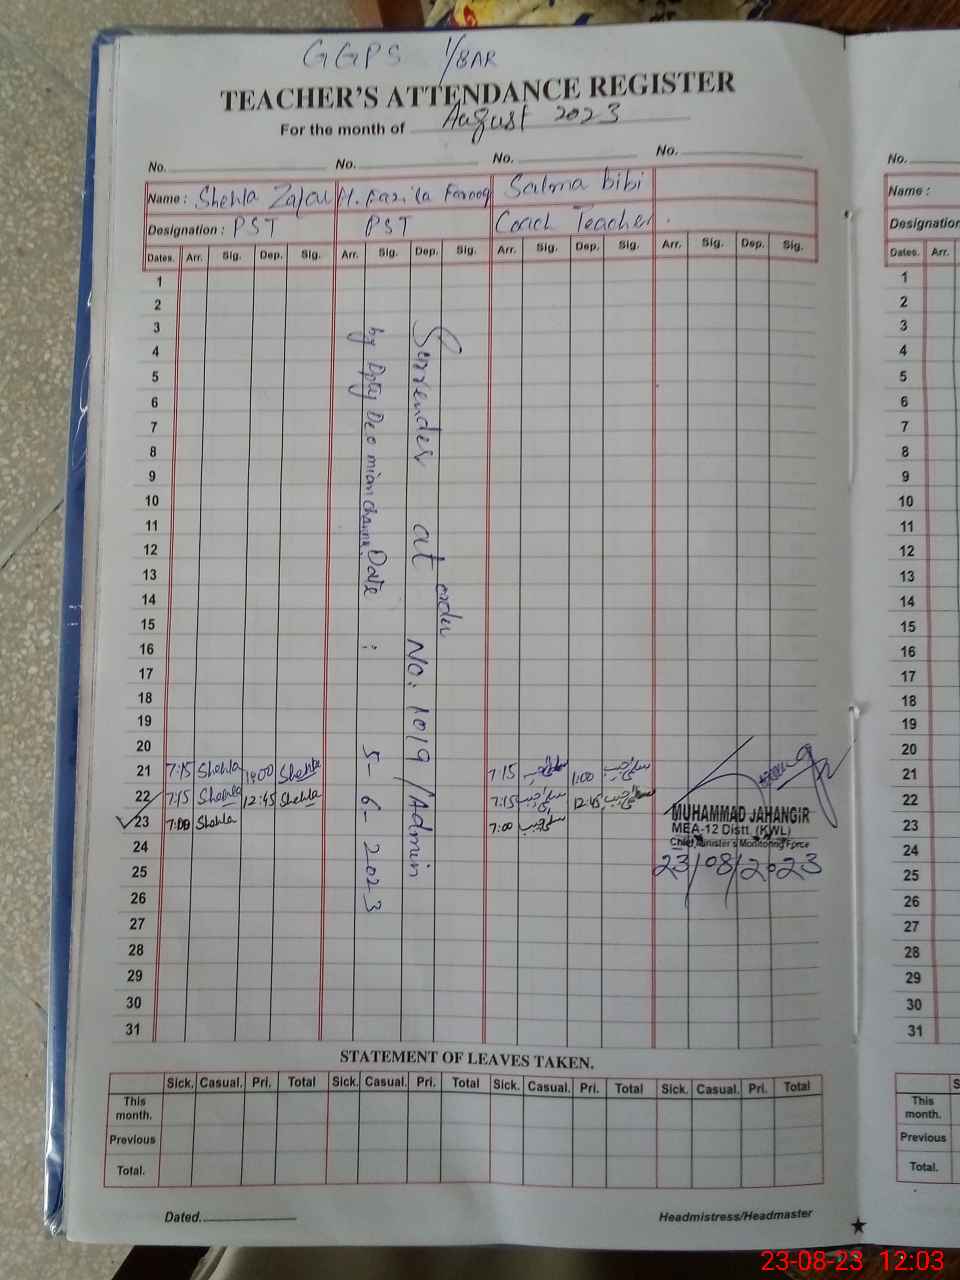 GGPS 1/8AR
TEACHER'S ATTENDANCE REGISTER
For the month of August 2023
No. No. No. No.
Name : Shehla Zafar Farooq Salma bibi
Designation : PST PST Coach Teacher.
Dates. Arr. Sig. Dep. Sig. Arr. Sig. Dep. Sig. Arr. Sig. Dep. Sig. Arr. Sig. Dep. Sig.
1
2
3
4
5
6
7
8
9
10
11
12
13
14
15
16
17
18
19
20
21 7:15 Shehla 1:00 Shehla 7:15 1:00
22 7:15 Shehla 12:45 Shehla 7:15 12:45
23 7:00 Shehla 7:00
24
25
26
27
28
29
30
31
Surrender at order No. 1019/Admin
by Dpty Deo mian channu Date : 5-6-2023
MUHAMMAD JAHANGIR
MEA-12 Distt (KWL)
Chief Minister's Monitoring Force
23/08/2023
STATEMENT OF LEAVES TAKEN.
Sick. Casual. Pri. Total Sick. Casual. Pri. Total Sick. Casual. Pri. Total Sick. Casual. Pri. Total
This month.
Previous
Total.
Dated.
Headmistress/Headmaster
No.
Name :
Designation
Dates. Arr.
1
2
3
4
5
6
7
8
9
10
11
12
13
14
15
16
17
18
19
20
21
22
23
24
25
26
27
28
29
30
31
S
This month.
Previous
Total.
23-08-23 12:03